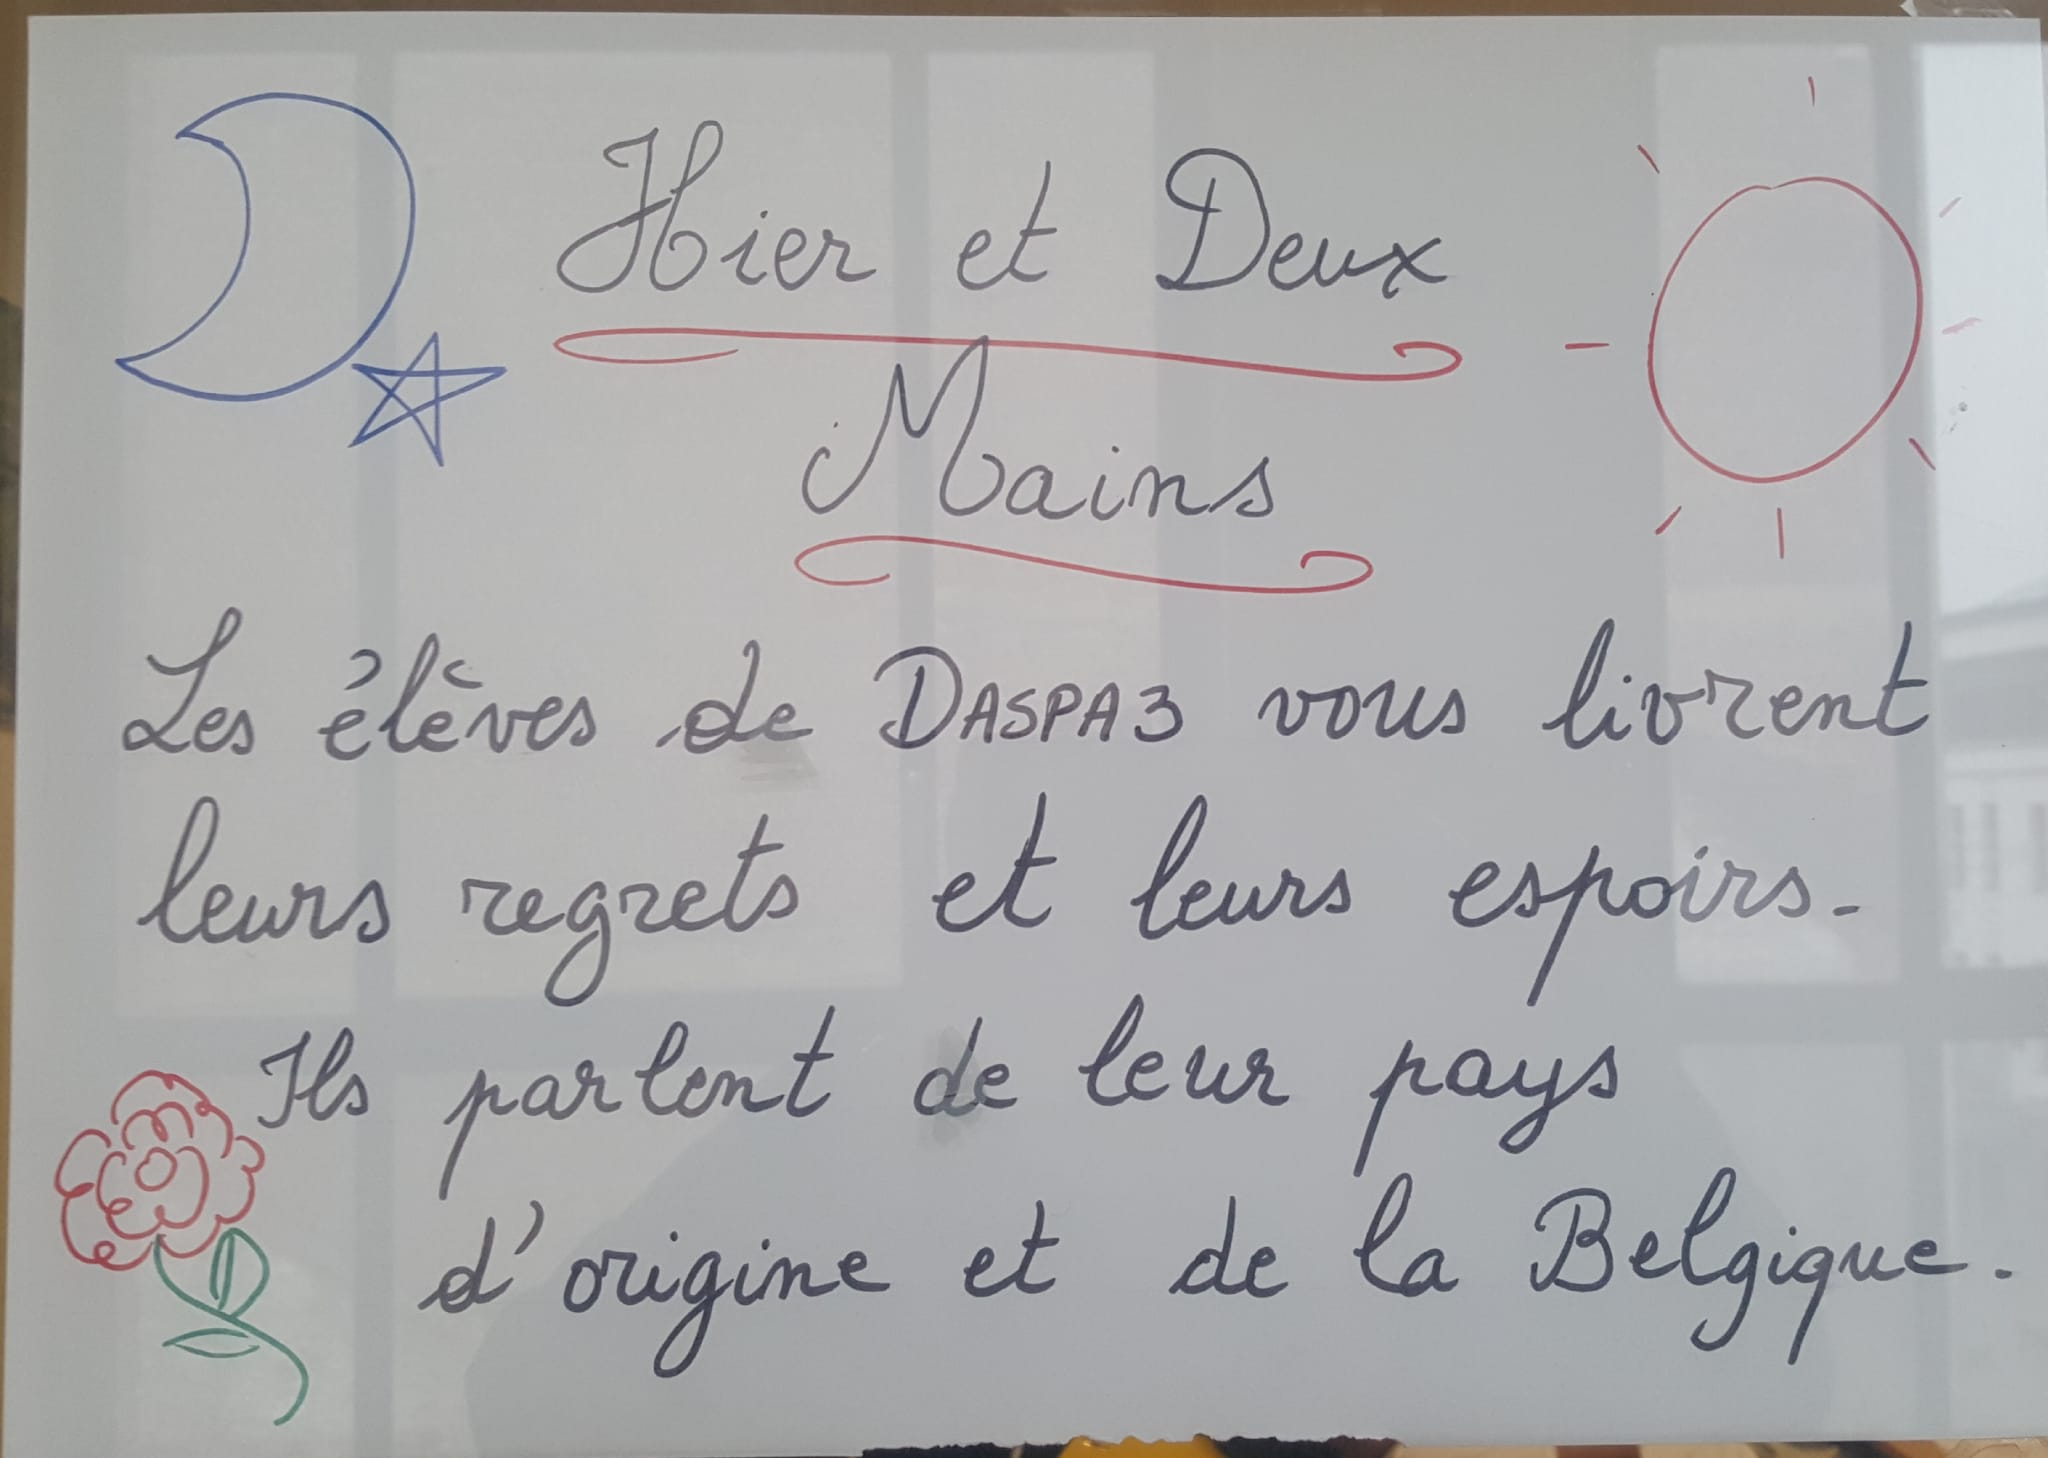 Hier et Deux
Mains
Les élèves de DASPA3 vous livrent
leurs regrets et leurs espoirs.
Ils parlent de leur pays
d'origine et de la Belgique.